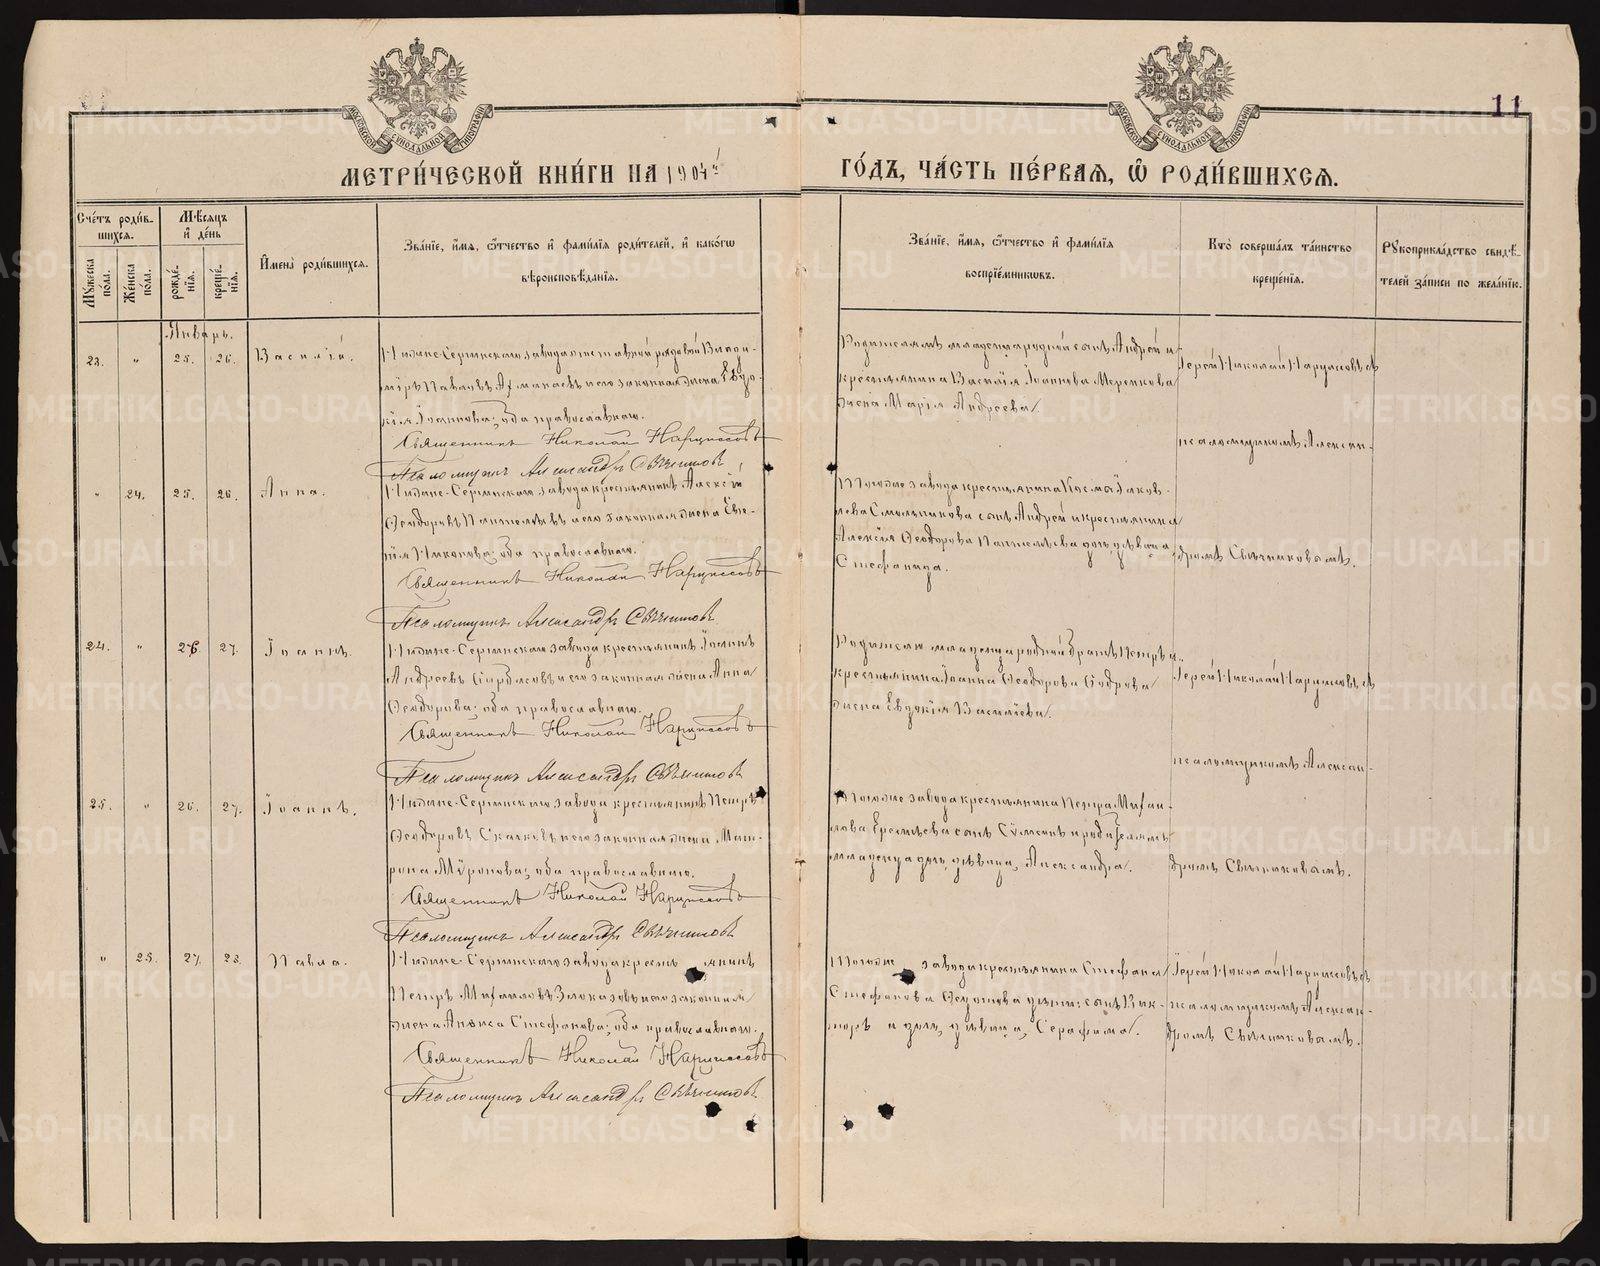 11
МЕТРИ́ЧЕСКОЙ КНИ́ГИ НА 1904й ГО́ДЪ, ЧА́СТЬ ПЕ́РВАЯ, Ѽ РОДИ́ВШИХСЯ.
Сче́тъ роди́вшихся.
Мѣ́сяцъ и҆ де́нь
Мꙋ́жеска по́ла.
Же́нска по́ла.
рожде́нїя.
креще́нїя.
И҆мена̀ роди́вшихся.
Зва́нїе, и҆́мя, ѻ҆́тчество и҆ фами́лїя роди́телей, и҆ како́гѡ
вѣроисповѣ́данїя.
Зва́нїе, и҆́мя, ѻ҆́тчество и҆ фами́лїя
воспрїе́мникѡвъ.
Кто̀ соверша́лъ та́инство
креще́нїя.
Рꙋкоприкла́дство свидѣ́телей за́писи по жела́нїю.
Январь.
23. " 25. 26. Василій.
Нижне-Сергинскаго завода отставной рядовой Влади-
міръ Павловъ и его законная жена Евдо-
кія Іоаннова; оба православные.
Священникъ Николай Нарциссовъ
Псаломщикъ Александръ Свѣчниковъ
Родителямъ младенца родной сынъ Андрей и
крестьянина Василія Іоаннова Меренкова
жена Марія Андреева.
Іерей Николай Нарциссовъ съ
псаломщикомъ Алексан-
" 24. 25. 26. Анна.
Нижне-Сергинскаго завода крестьянинъ Алексѣй
Ѳеодоровъ Пантелѣевъ и его законная жена Евге-
нія Никонова; оба православные.
Священникъ Николай Нарциссовъ
Псаломщикъ Александръ Свѣчниковъ
Тогоже завода крестьянина Космы Іаков-
лева Смольникова сынъ Андрей и крестьянина
Алексія Ѳеодорова Пантелѣева дочь дѣвица
Стефанида.
дромъ Свѣчниковымъ.
24. " 26. 27. Іоаннъ.
Нижне-Сергинскаго завода крестьянинъ Іоаннъ
Андреевъ и его законная жена Анна
Ѳеодорова; оба православные.
Священникъ Николай Нарциссовъ
Псаломщикъ Александръ Свѣчниковъ
родной братъ Петръ и
крестьянина Іоанна Ѳеодорова
жена Евдокія Василіева.
Іерей Николай Нарциссовъ съ
псаломщикомъ Алексан-
25. " 26. 27. Іоаннъ.
Нижне-Сергинскаго завода крестьянинъ Петръ
Ѳеодоровъ и его законная жена Мат-
рона Мѵронова; оба православные.
Священникъ Николай Нарциссовъ
Псаломщикъ Александръ Свѣчниковъ
Тогоже завода крестьянина Петра Михаи-
лова сынъ Сѵмеонъ и родителямъ
младенца дочь, дѣвица, Александра.
дромъ Свѣчниковымъ.
" 25. 27. 28. Павла.
Нижне-Сергинскаго завода крестьянинъ
Петръ Михаиловъ Злоказовъ и его законная
жена Анѳиса Стефанова; оба православные.
Священникъ Николай Нарциссовъ
Псаломщикъ Александръ Свѣчниковъ
Тогоже завода крестьянина Стефана
Стефанова дѣти: сынъ Вик-
торъ и дочь, дѣвица, Серафима.
Іерей Николай Нарциссовъ съ
псаломщикомъ Алексан-
дромъ Свѣчниковымъ.